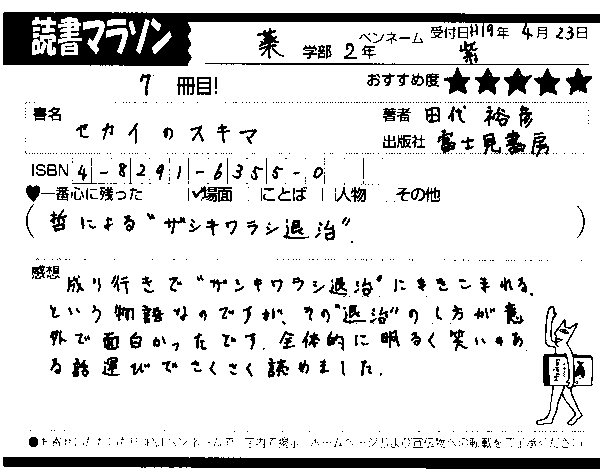 読書マラソン 薬 学部 2年 ペンネーム 紫 受付日H19年 4月23日
7 冊目! おすすめ度 ★★★★★
書名 セカイのスキマ 著者 田代 裕彦
出版社 富士見書房
ISBN 4-8291-6355-0
♥一番心に残った ✓場面 □ことば □人物 その他
(哲による"ザシキワラシ退治".)
感想 成り行きで"ザシキワラシ退治"にまきこまれる、
という物語なのですが、その"退治"のし方が意
外で面白かったです。全体的に明るく笑いのあ
る話運びでさくさく読めました.